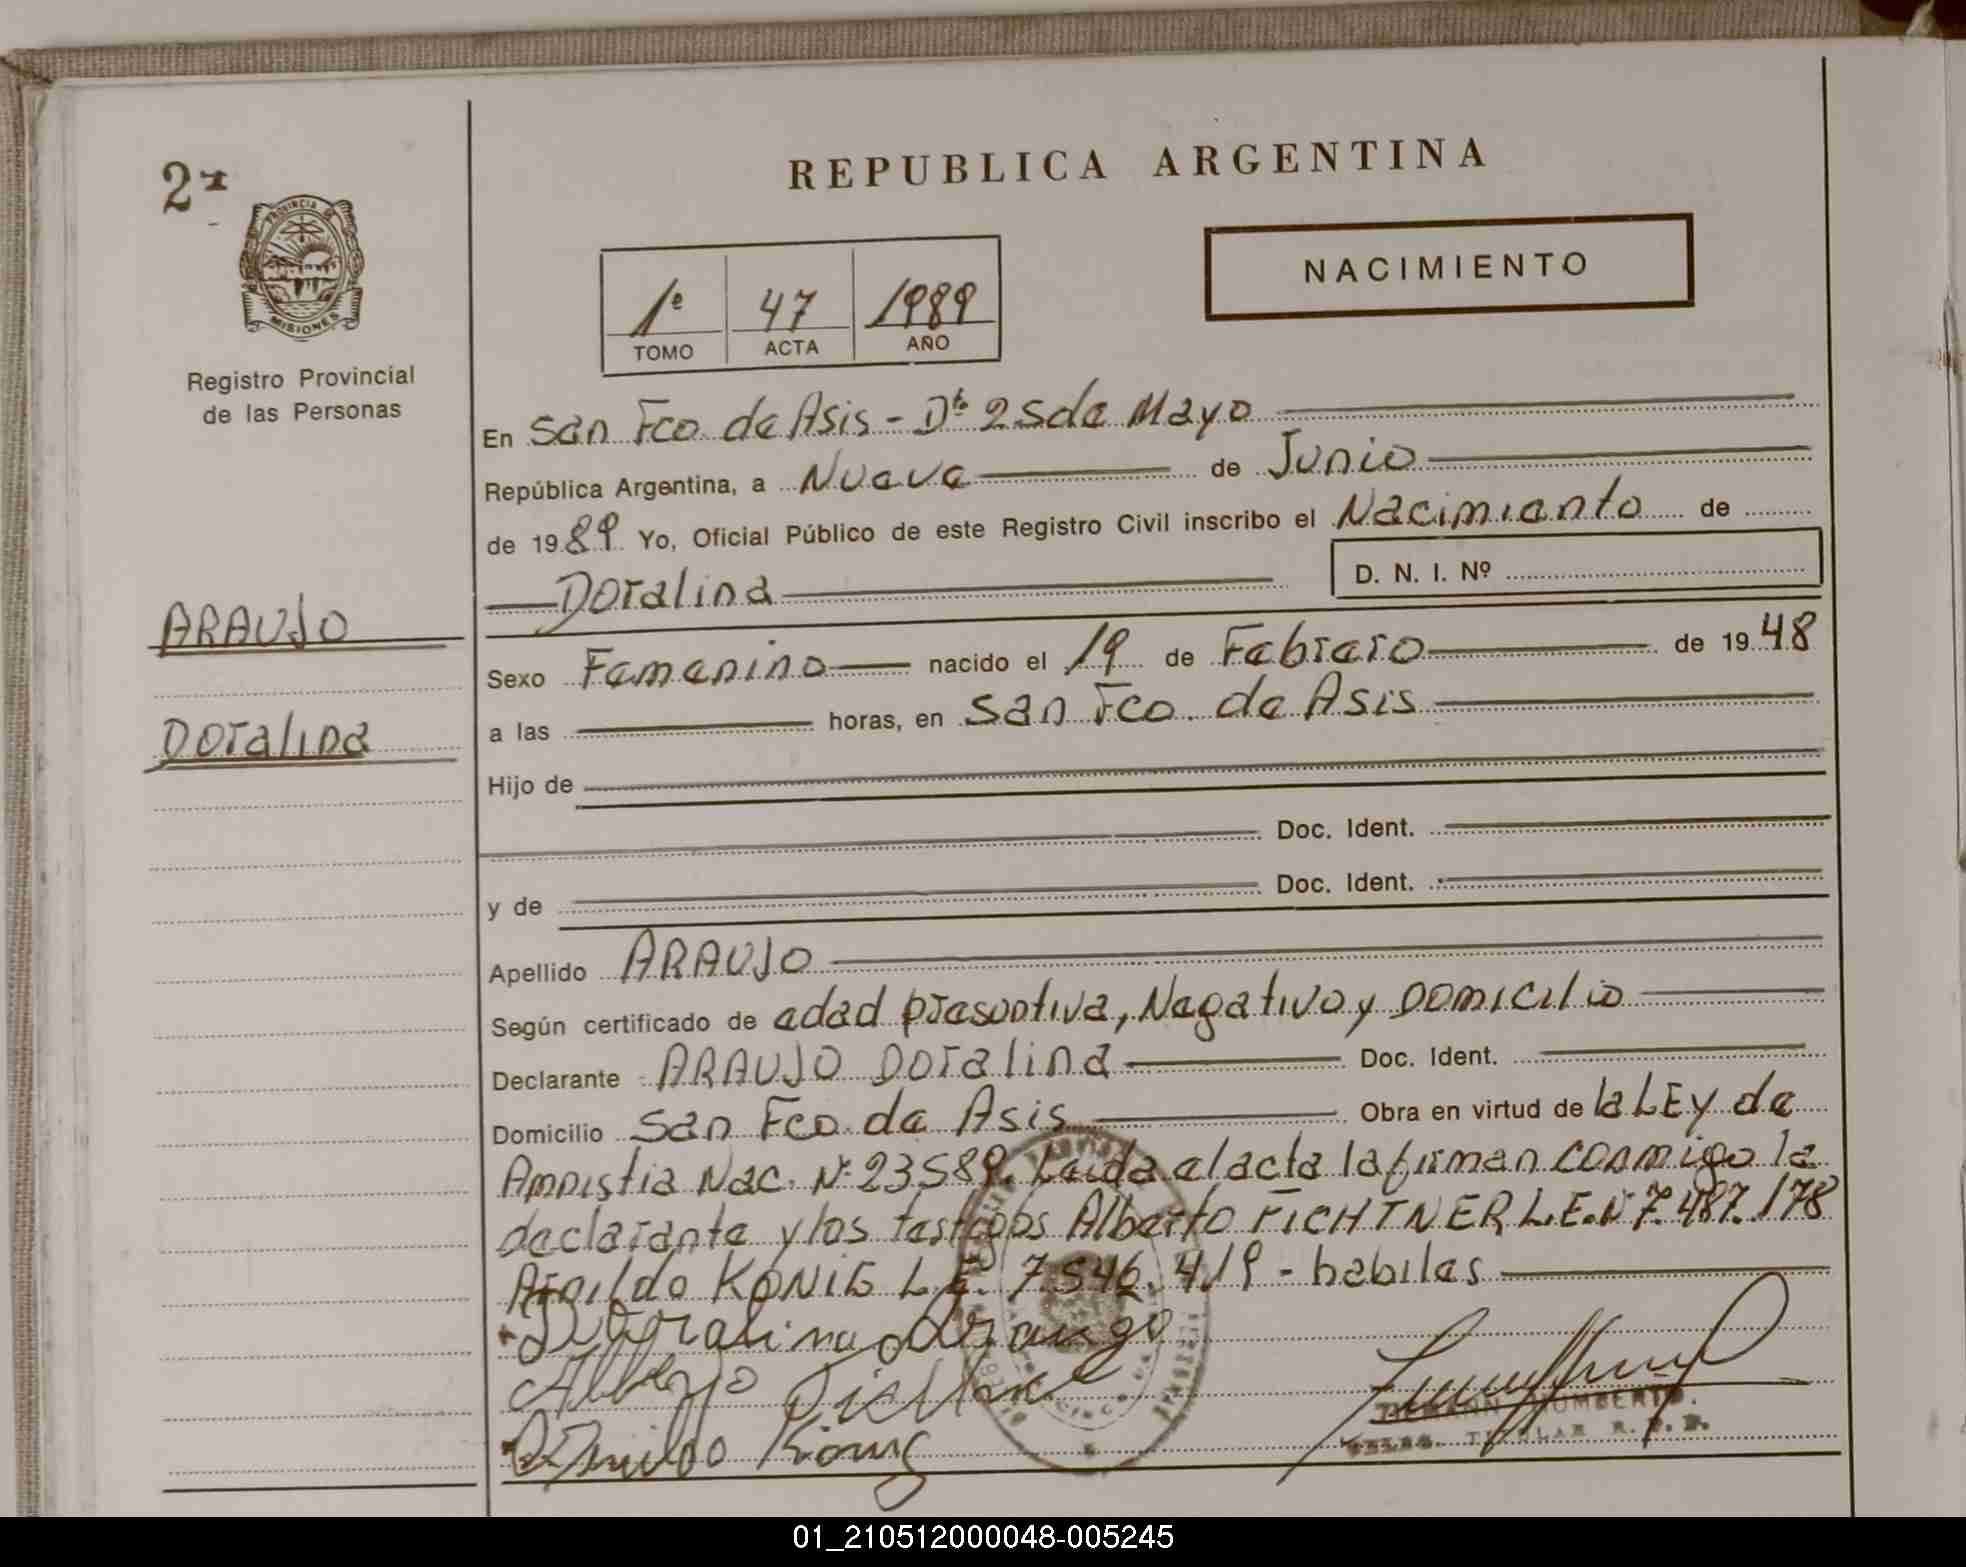 2ª
PROVINCIA DE
MISIONES
Registro Provincial
de las Personas
REPUBLICA ARGENTINA
NACIMIENTO
1º 47 1989
TOMO ACTA AÑO
En San Fco. de Asis - Dto 25 de Mayo
República Argentina, a Nueve de Junio
de 1989 Yo, Oficial Público de este Registro Civil inscribo el Nacimiento de
Doralina D. N. I. Nº
ARAUJO
Sexo Femenino nacido el 19 de Febrero de 1948
a las horas, en San Fco. de Asis
Doralina
Hijo de
Doc. Ident.
y de Doc. Ident.
Apellido ARAUJO
Según certificado de edad presuntiva, Negativo y Domicilio
Declarante ARAUJO Doralina Doc. Ident.
Domicilio San Fco. de Asis Obra en virtud de la LEy de
Amnistia Nac. Nº 23589. Leida el acta la firman conmigo la
declarante y los testigos Alberto FICHTNER L.E. Nº 7.487.178
Arnildo KÖNIG L.E. 7.546.419 - habiles
Doralina Araujo
HUMBERTO
TITULAR R. P. P.
01_210512000048-005245